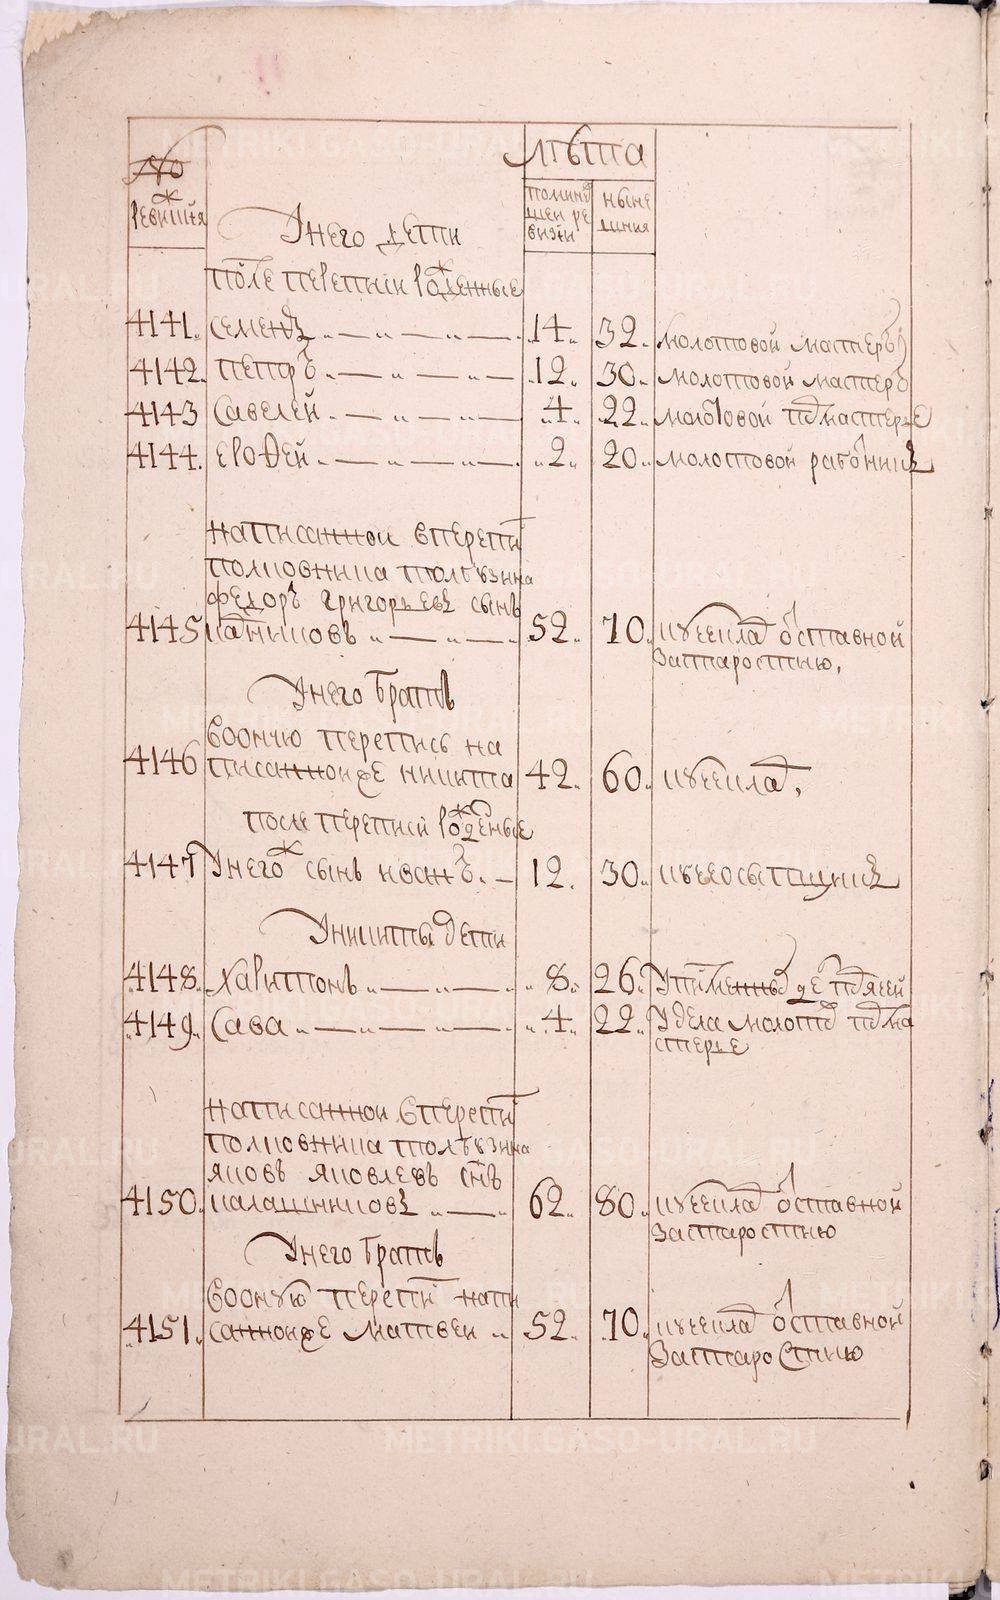 № ревижския
Лѣта
по минувшей ревизии
ныне шния
У него дети
после переписи рожденные
4141. Семенъ 14. 32. молотовой мастеръ
4142. Петръ 12. 30. молотовой мастеръ
4143 Савелей 4. 22. молотовой подмастерье
4144. Ерофей 2. 20. молотовой работникъ
написанной в перепи
полковника толбузина
федоръ григорьевъ сынъ
4145 52. 70. отставной
за старостию.
У него братъ
в ооную перепись на
4146 писанной же никита 42. 60.
после переписи рожденые
4147 У него ж сынъ иванъ 12. 30.
У никиты дети
4148. Харитонъ 8. 26.
4149. Сава 4. 22. У дела молотов подма
стерье
написанной в перепи
полковника толбузина
яковъ яковлевъ снъ
4150. калашниковъ 62. 80. отставной
за старостию
У него братъ
в ооную перепи напи
4151. санной же матвеи 52. 70. отставной
за старостию
METRIKI.GASO-URAL.RU